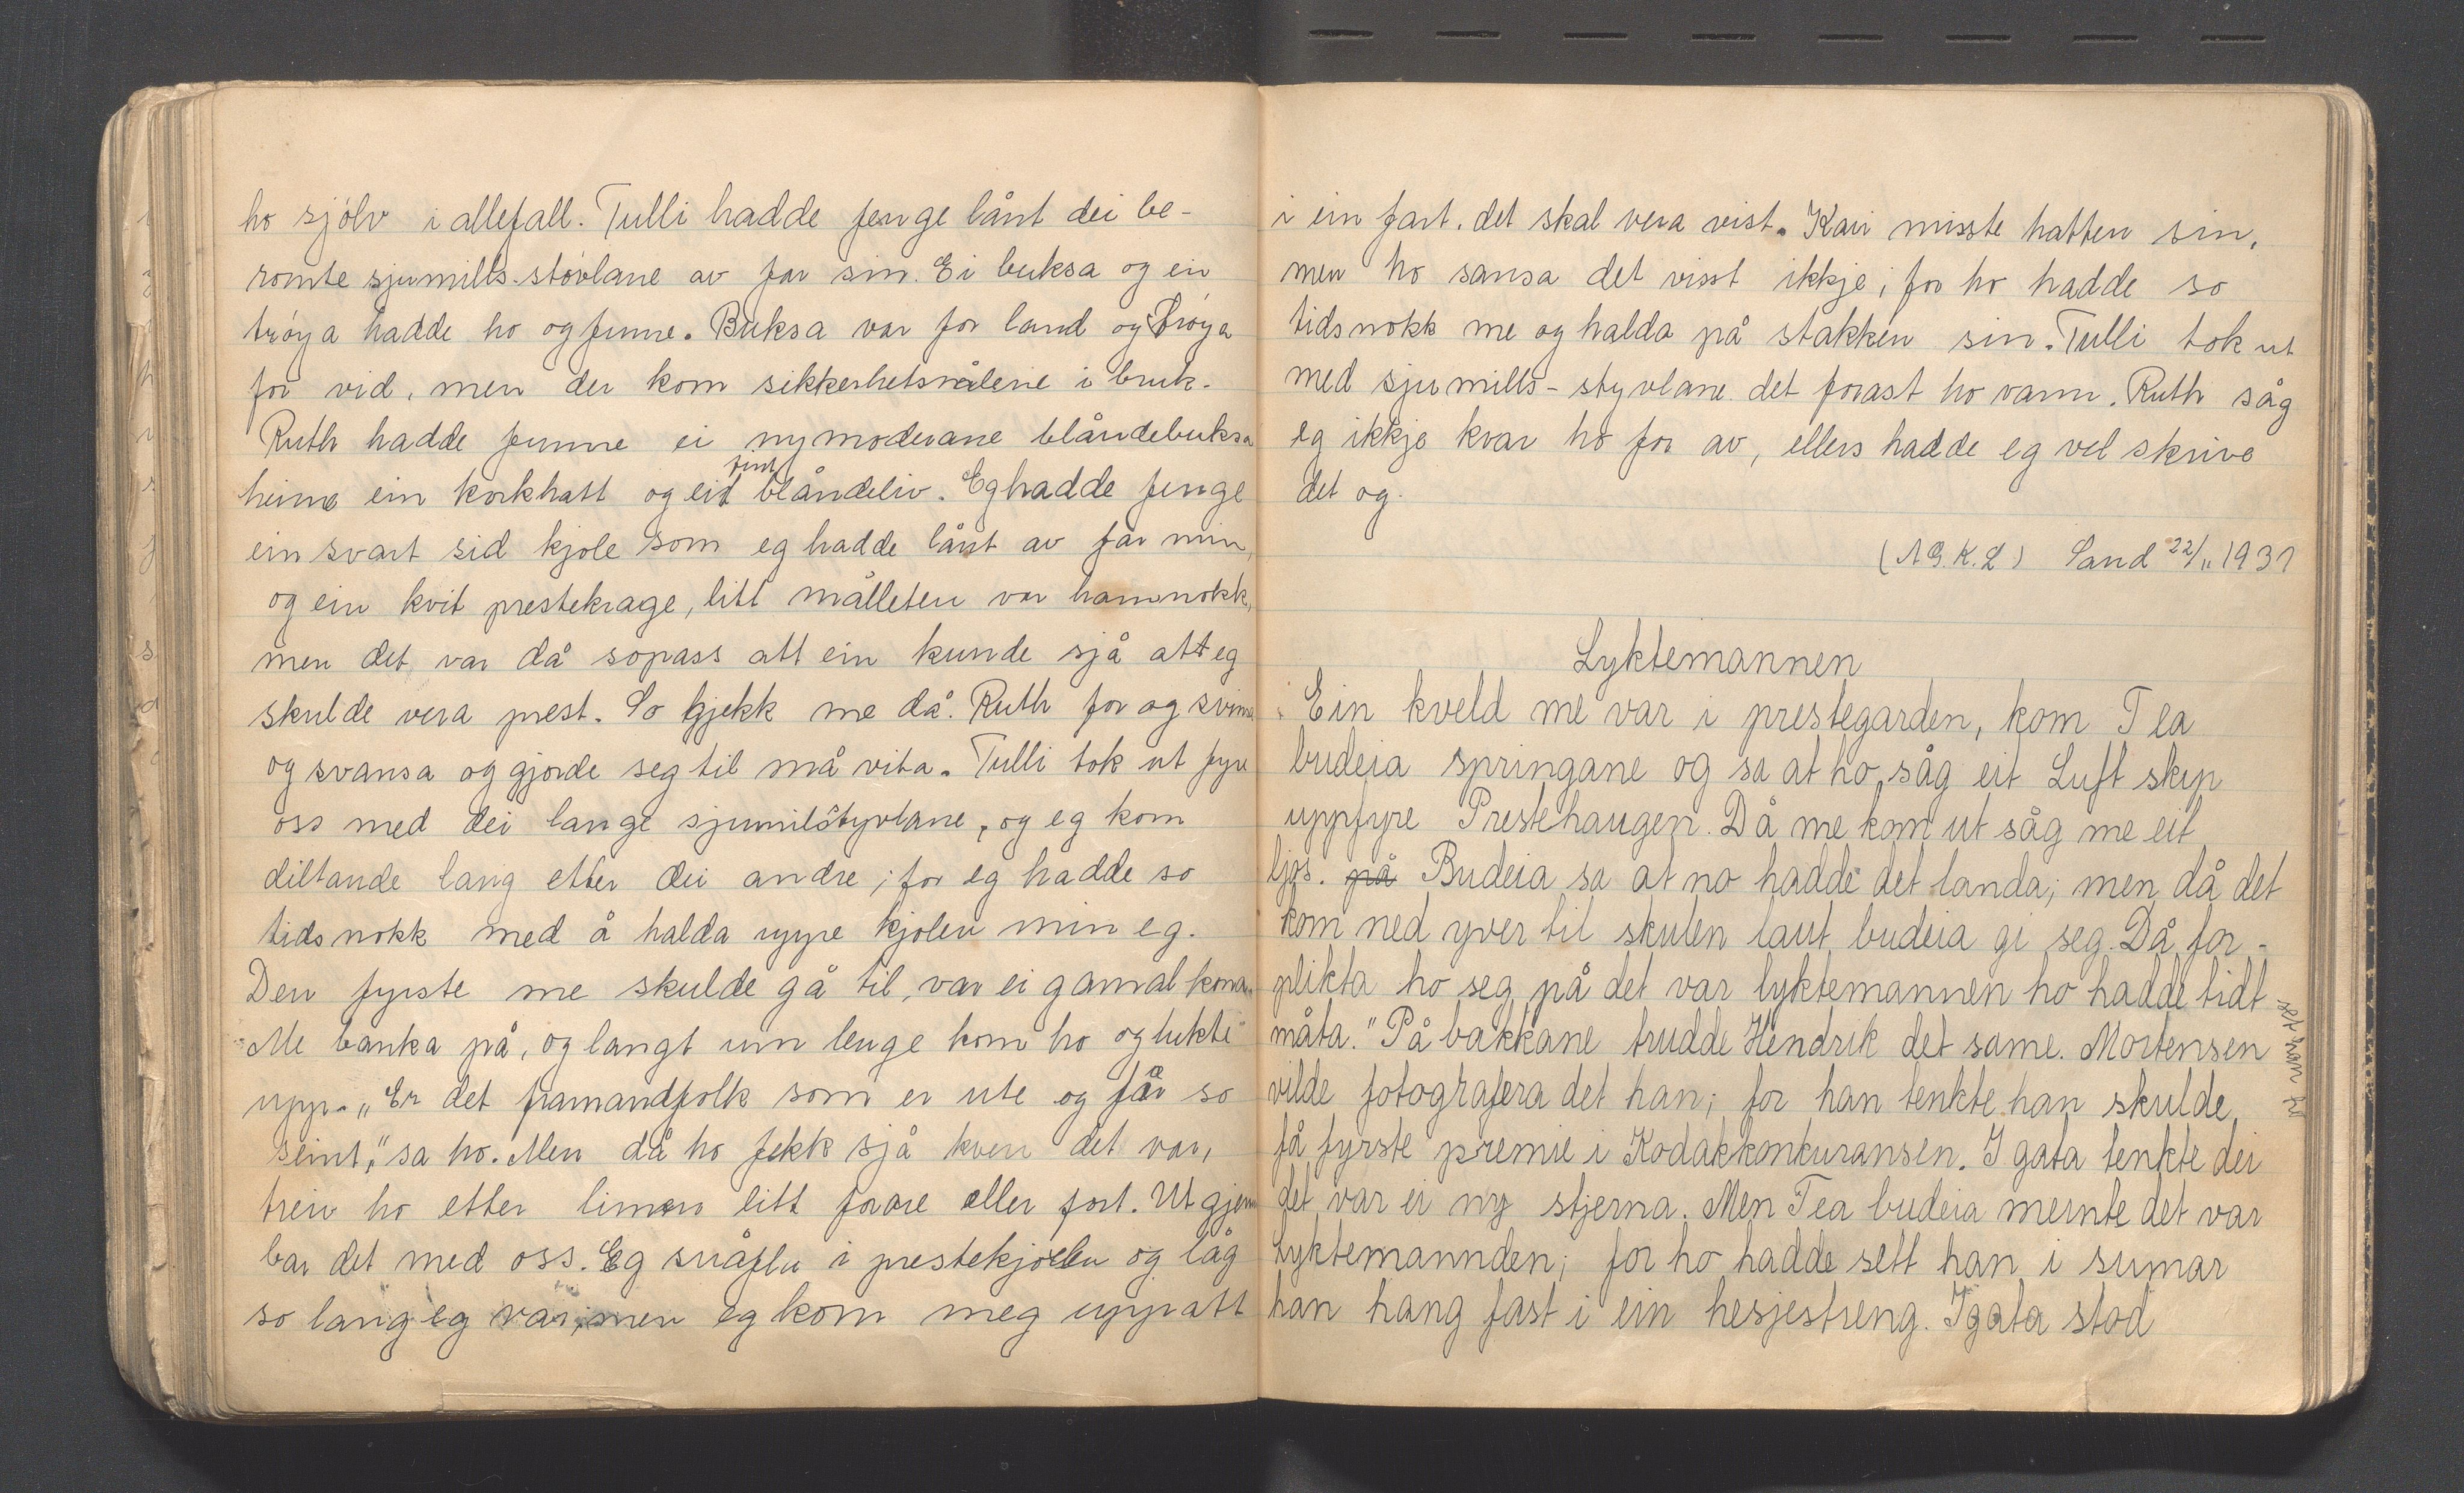 ho sjølv i allefall. Tulli hadde fenge lånt dei be-
rømte sjumills-støvlane av far sin. Ei buksa og ein
trøya hadde ho og funne. Buksa var for land og trøya
for vid, men der kom sikkerhetsnålene i bruk.
Ruth hadde funne ei nymoderane blåndebuksa
heime ein korkhatt og eit fint blåndeliv. Eg hadde fenge
ein svart sid kjole som eg hadde lånt av far min,
og ein kvit prestekrage, litt målleten var han nokk,
men det var då sopass att ein kunde sjå att eg
skulde vera prest. So gjekk me då. Ruth for og svima
og svansa og gjorde seg til må vita. Tulli tok ut fyre
oss med dei lange sjumilstyvlane, og eg kom
diltande lang etter dei andre; for eg hadde so
tids nokk med å halda uppe kjolen min eg.
Den fyrste me skulde gå til, var ei gamal kona.
Me banka på, og langt um lenge kom ho og lukte
upp. „Er det framandfolk som er ute og får so
seint," sa ho. Men då ho fekk sjå kven det var,
treiv ho etter limen litt fårre eller fort. Ut gjen
bar det med oss. Eg snåfla i prestekjolen og låg
so lang eg var, men eg kom meg upp att
i ein fart. det skal vera vist. Kari misste hatten sin,
men ho sansa det visst ikkje; for ho hadde so
tids nokk me og halda på stakken sin. Tulli tok ut
med sjumills-styvlane det forast ho vann. Ruth såg
eg ikkje kvar ho for av, ellers hadde eg vel skrive
det og.
(A G. K. L) Sand 22/11 1931
Lyktemannen
Ein kveld me var i prestegarden, kom Tea
budeia springane og sa at ho såg eit Luft skip
uppfyre Prestehaugen. Då me kom ut såg me eit
ljos. på Budeia sa at no hadde det landa; men då det
kom ned yver til skulen laut budeia gi seg. Då for-
plikta ho seg på det var lyktemannen ho hadde tidt
måta." På bakkane trudde Hendrik det same. Mortensen
vilde fotografera det han; for han tenkte han skulde
få fyrste premie i Kodakkonkuransen. I gata tenkte dei
det var ei ny stjerna. Men Tea budeia meinte det var
Lyktemannden; for ho hadde sett han i sumar
han hang fast i ein hesjestreng. I gata stod